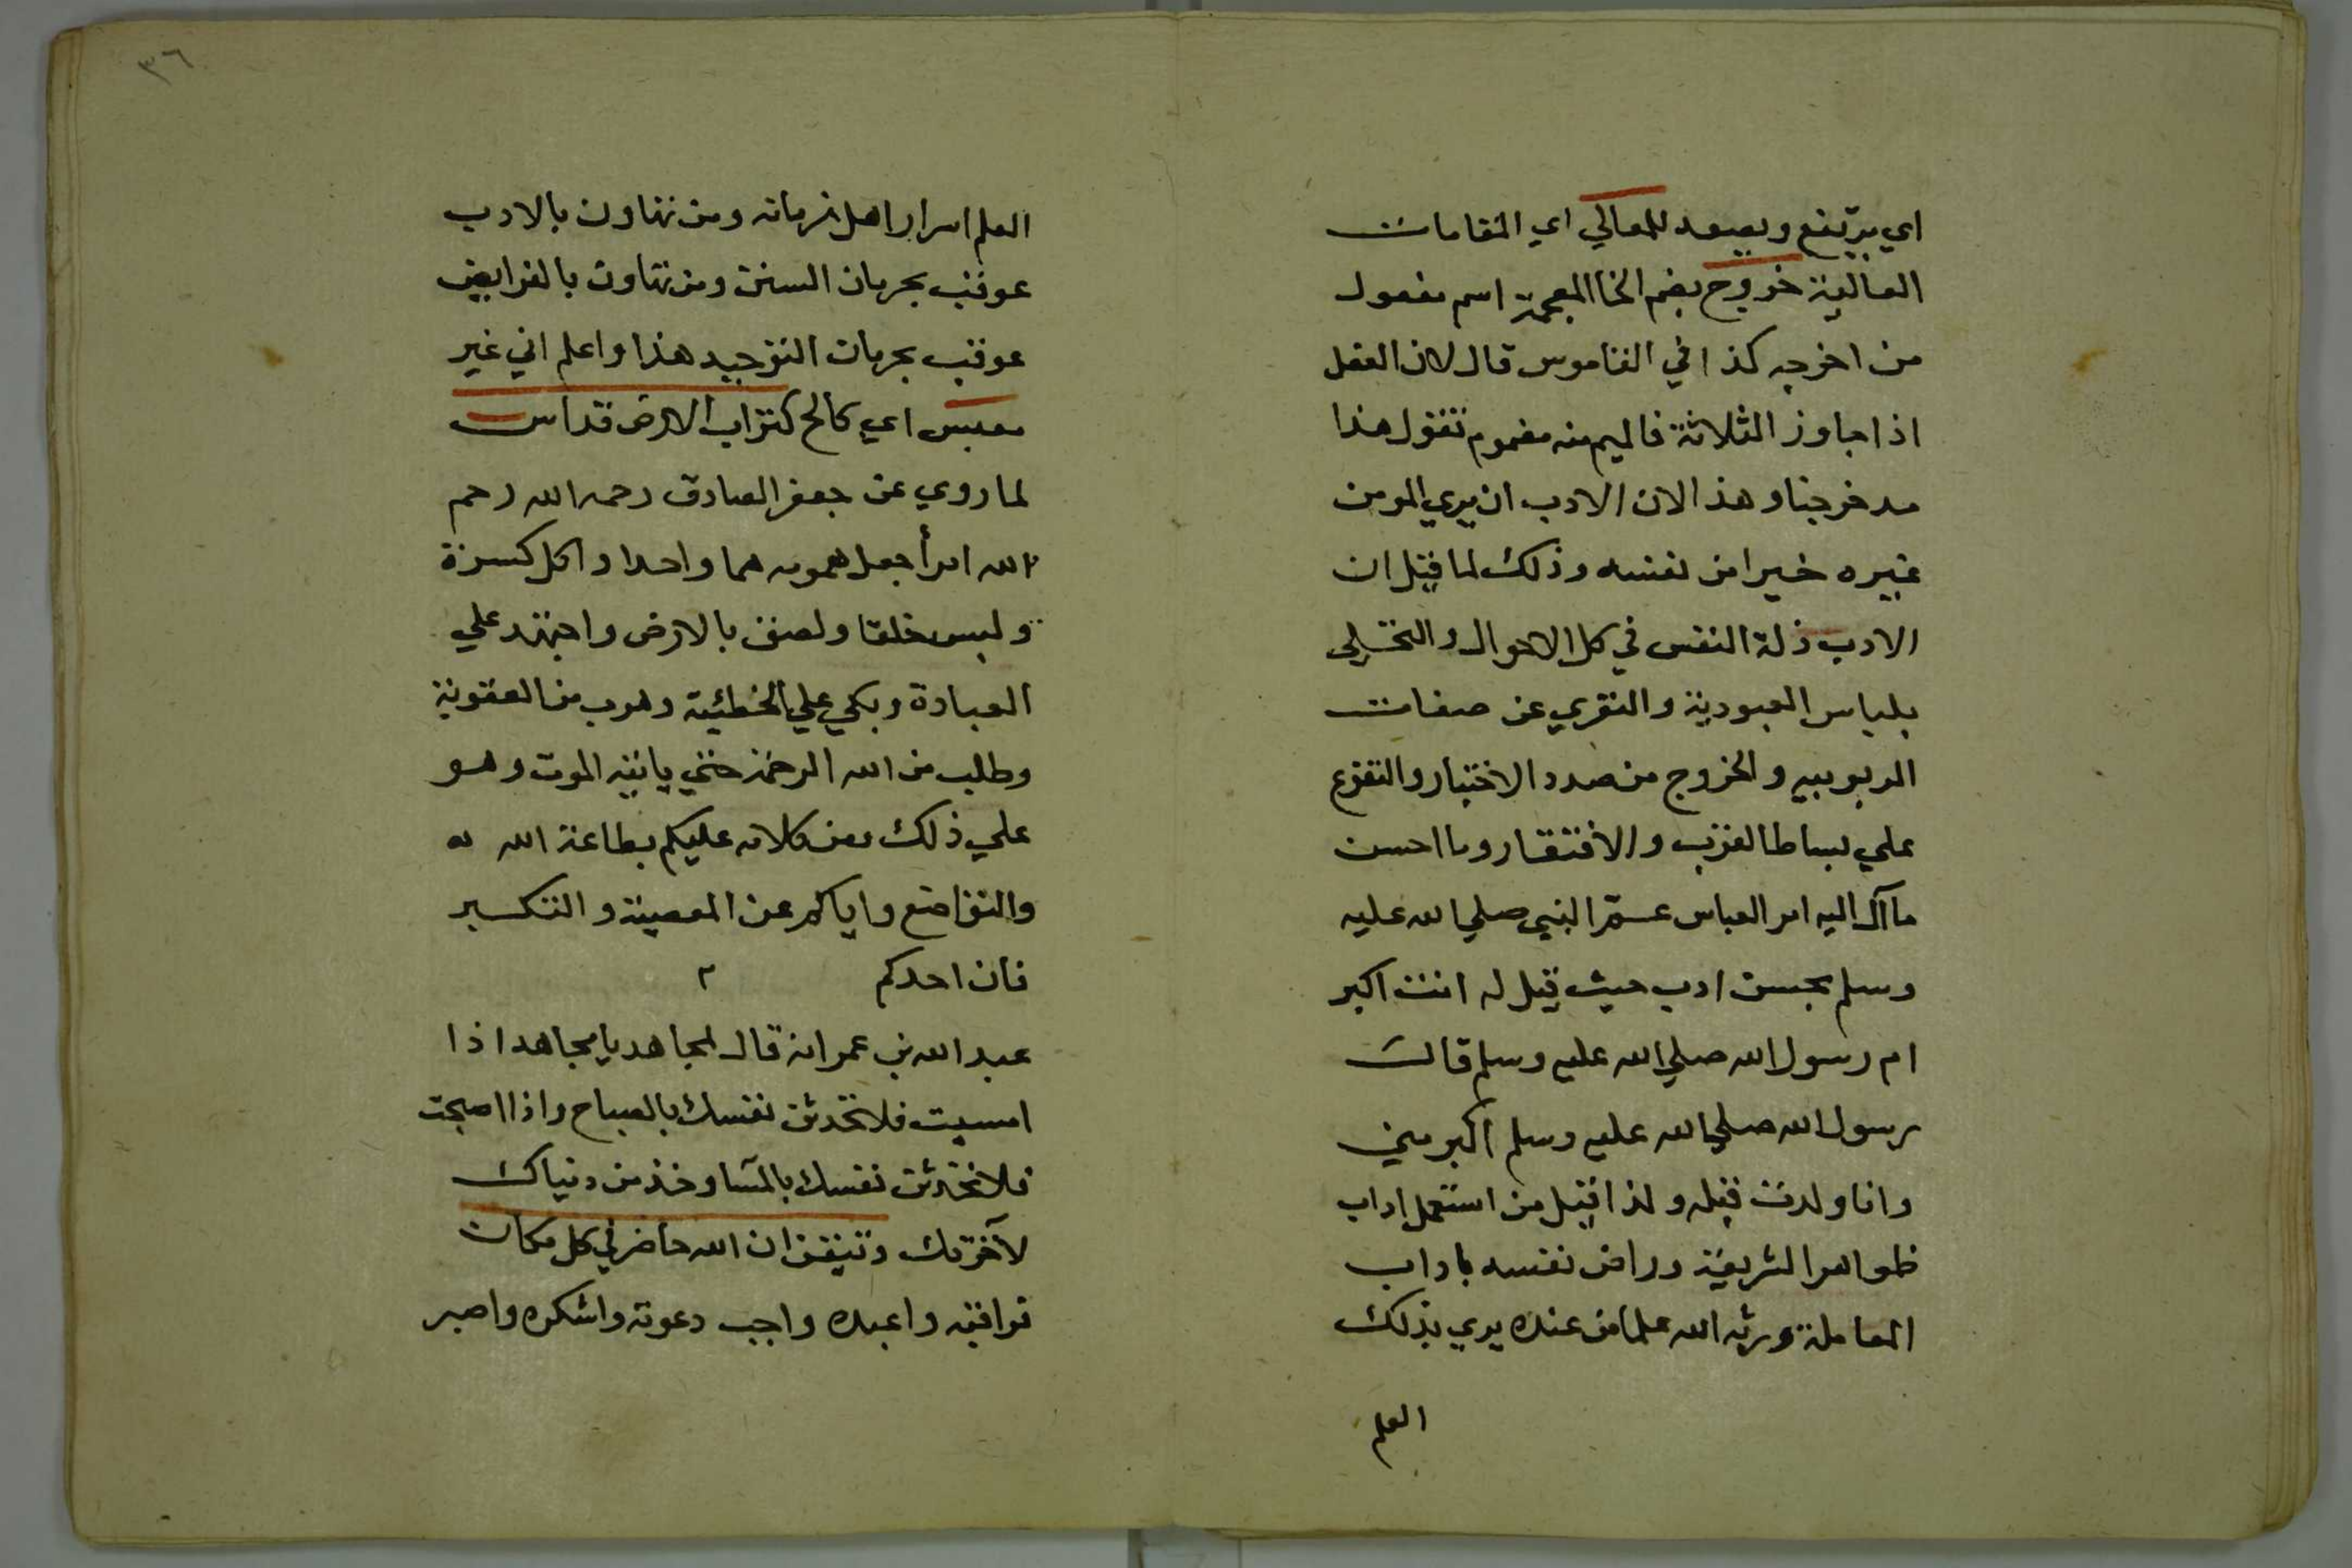 اي يرتفع ويصعد للمعالي اي المقامات
العالية خروج بضم الخا المعجمة اسم مفعول
من اخرجه كذا في القاموس قال لان الفعل
اذا جاوز الثلاثة فالميم منه مضموم تقول هذا
مدخرجنا وهذا لان الادب ان يري المومن
غيره خيرا من نفسه وذلك لما قيل ان
الادب ذلة النفس في كل الاحوال والتحلي
بلباس العبودية والتعري عن صفات
الربوبيه والخروج من صدد الاختيار والتفرع
علي بساط القرب والافتقار وما احسن
ما آل اليه امر العباس عم النبي صلي الله عليه
وسلم بحسن ادب حيث قيل له انت اكبر
ام رسول الله صلي الله عليه وسلم قالت
رسول الله صلي الله عليه وسلم اكبر مني
وانا ولدت قبله ولذا قيل من استعمل اداب
ظواهر الشريعة وراض نفسه باداب
المعاملة ورثه الله علما من عنده يري بذلك
العلم
٣٦
العلم اسرار اهل زمانه ومن تهاون بالادب
عوقب بحرمان السنن ومن تهاون بالفرايض
عوقب بحرمان التوحيد هذا واعلم اني غير
معبس اي كالح كتراب الارض قداس
لما روي عن جعفر الصادق رحمه الله رحم
الله امرأ جعل همومه هما واحدا واكل كسرة
ولبس خلقا ولصق بالارض واجتهد علي
العبادة وبكي علي الخطئية وهرب من العقوبة
وطلب من الله الرحمة حتي ياتيه الموت وهو
علي ذلك ومن كلامه عليكم بطاعة الله
والتواضع واياكم عن المعصية والتكبر
فان احدكم ٢
عبد الله بن عمر انه قال لمجاهد يا مجاهد اذا
امسيت فلا تحدثن نفسك بالصباح واذا اصبحت
فلا تحدثن نفسك بالمسآ وخذ من دنياك
لآخرتك وتيقن ان الله حاضر في كل مكان
فراقبه واعبده واجب دعوته واشكره واصبر